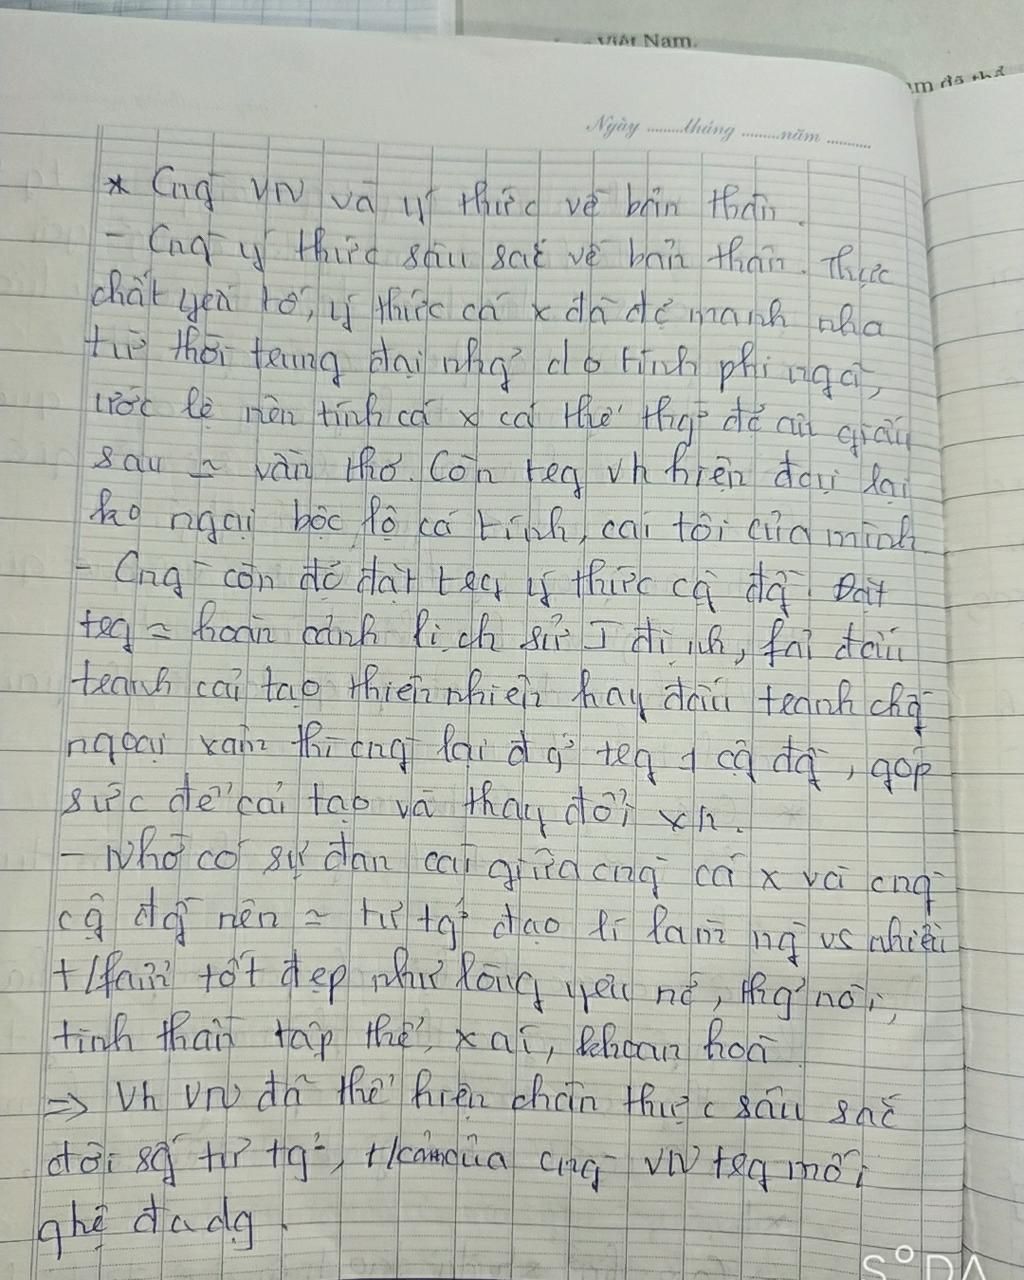 Việt Nam.
am đã thể
Ngày ........tháng ........năm ..........
* Cng̃ VN và ý thức về bản thân.
- Cng̃ ý thức sâu sắc về bản thân. Thực
chất yếu tố, ý thức cá x đã đc manh nha
từ thời trung đại nhg̉ do tính phi ngã,
ước lệ nên tính cá x có thể thg̀ để ẩn giấu
sau = vần thơ. Còn trg vh hiện đại lại
ko ngại bộc lộ cá tính, cái tôi của mình
- Cng̃ còn đc đặt trg ý thức cg̣ đg̀. Đặt
trg = hoàn cảnh lịch sử I định, fải đấu
tranh cải tạo thiên nhiên hay đấu tranh chg̃
ngoại xâm thì cng̃ lại đg̉ trg 1 cg̣ đg̀, góp
sức để cải tạo và thay đổi xh.
- Nhờ có sự đan cài giữa cng̃ cá x và cng̃
cg̣ đg̀ nên = tư tg̉ đạo lí làm ng̀ vs nhiều
t/fẩm tốt đẹp như lòng yêu nc, thg̉ nòi,
tinh thần tập thể, x ái, khoan hoà
=> Vh VN đã thể hiện chân thực sâu sắc
đời sg̃ tư tg̉, t/cảm của cng̃ VN trg mối
qhệ đa dg̣.
S°DA